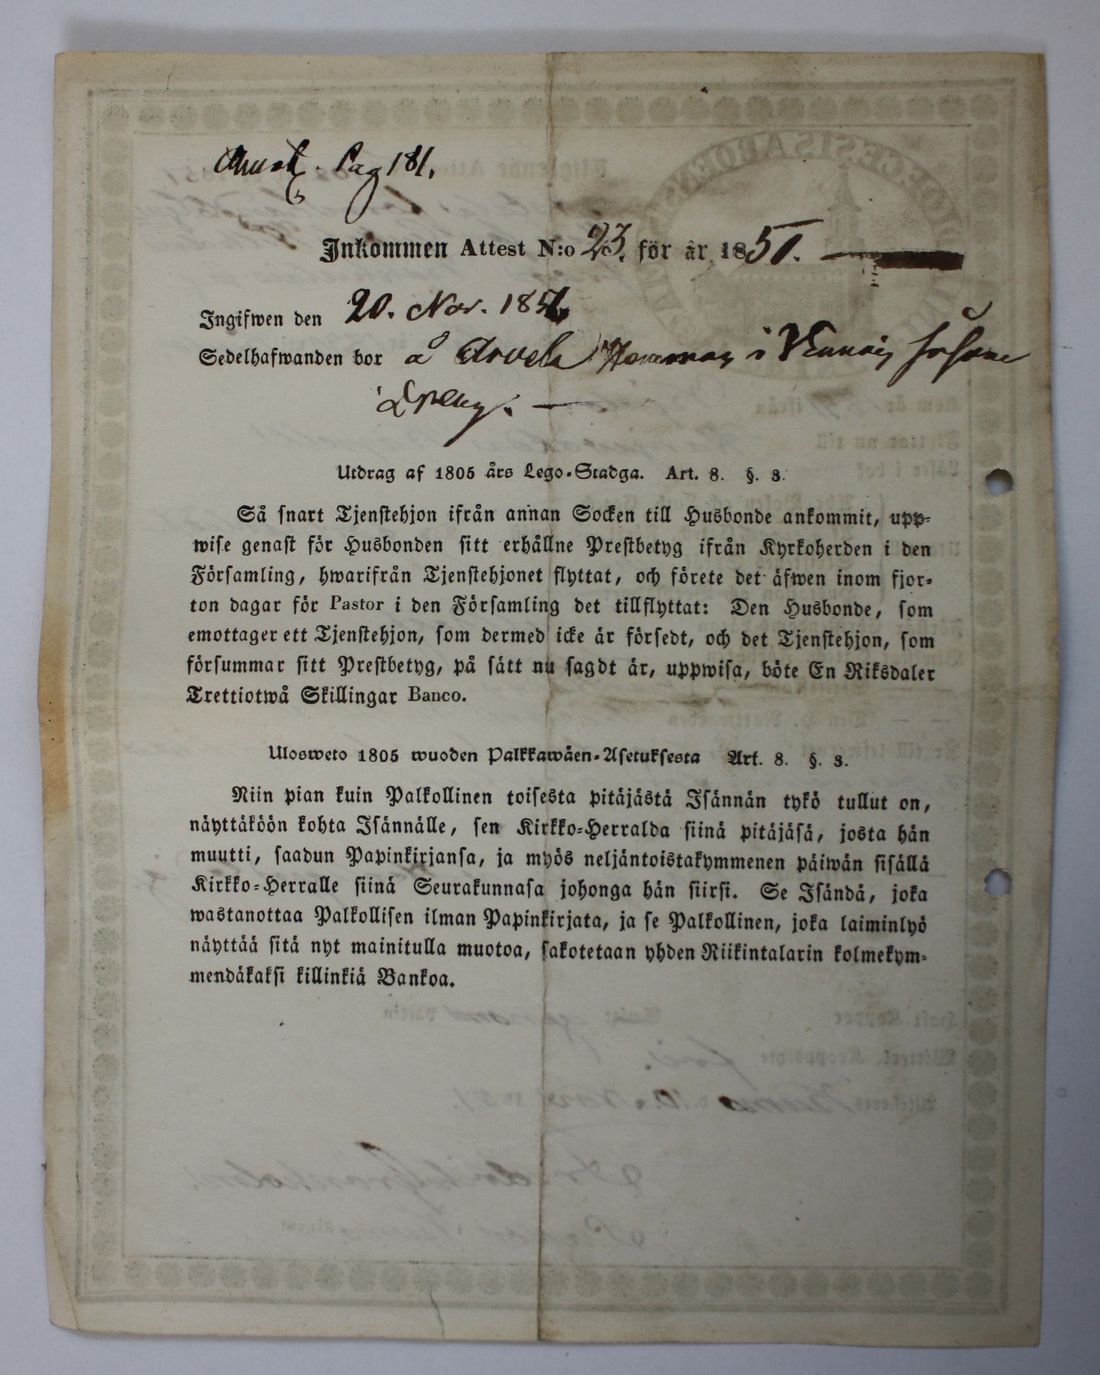 Pag 181.
Inkommen Attest N:o 23. för år 1851.
Ingifwen den 20. Nov. 1851.
Sedelhafwanden bor å Arvela i
Dreng. —
Utdrag af 1805 års Lego-Stadga. Art. 8. §. 3.
Så snart Tjenstehjon ifrån annan Socken till Husbonde ankommit, upp-
wise genast för Husbonden sitt erhållne Prestbetyg ifrån Kyrkoherden i den
Församling, hwarifrån Tjenstehjonet flyttat, och förete det äfwen inom fjor-
ton dagar för Pastor i den Församling det tillflyttat: Den Husbonde, som
emottager ett Tjenstehjon, som dermed icke är försedt, och det Tjenstehjon, som
försummar sitt Prestbetyg, på sätt nu sagdt är, uppwisa, böte En Riksdaler
Trettiotwå Skillingar Banco.
Ulosweto 1805 wuoden Palkkawäen-Asetuksesta Art. 8. §. 3.
Niin pian kuin Palkollinen toisesta pitäjästä Isännän tykö tullut on,
näyttäköön kohta Isännälle, sen Kirkko-Herralda siinä pitäjäsä, josta hän
muutti, saadun Papinkirjansa, ja myös neljäntoistakymmenen päiwän sisällä
Kirkko-Herralle siinä Seurakunnasa johonga hän siirsi. Se Isändä, joka
wastanottaa Palkollisen ilman Papinkirjata, ja se Palkollinen, joka laiminlyö
näyttää sitä nyt mainitulla muotoa, sakotetaan yhden Riikintalarin kolmekym-
mendäkaksi killinkiä Bankoa.